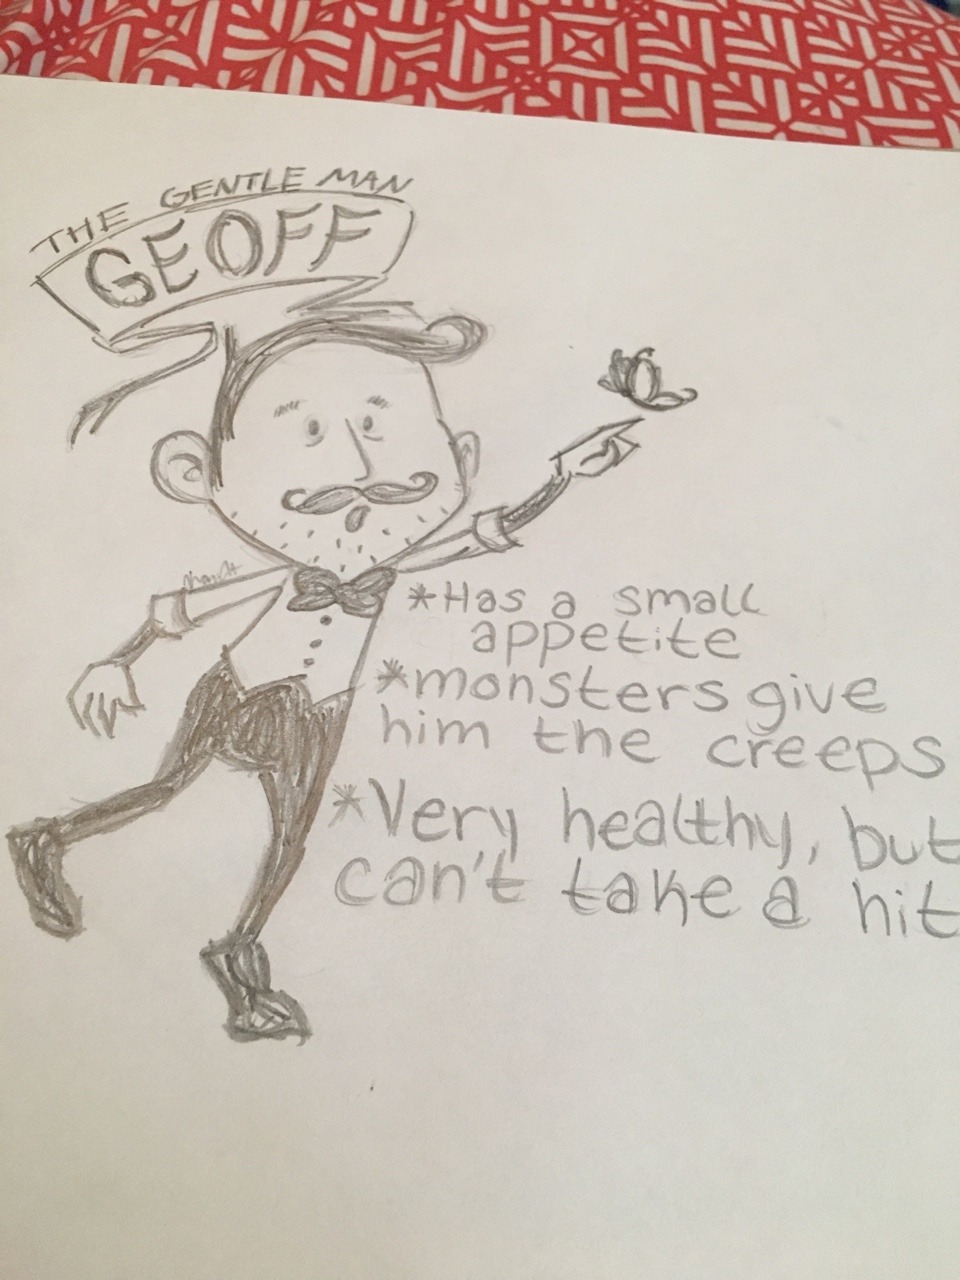 THE GENTLE MAN
GEOFF
*Has a small
appetite
*monsters give
him the creeps
*Very healthy, but
can't take a hit